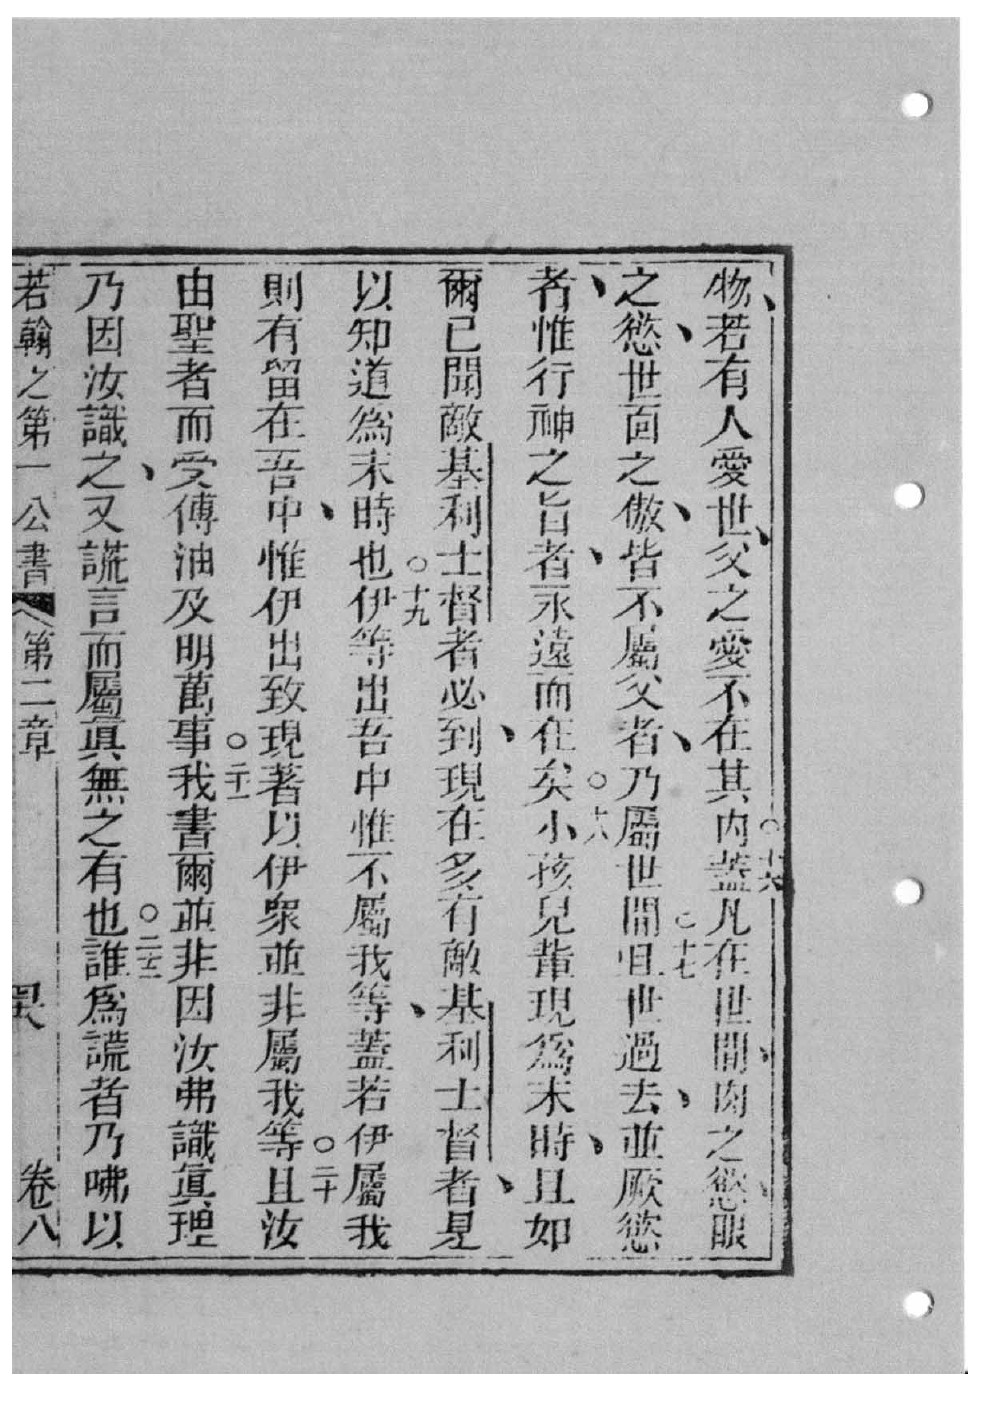 物、若有人愛世、父之愛不在其內。○十六蓋凡在世間、肉之慾、眼
之慾、世面之傲、皆不屬父者、乃屬世間。○十七且世過去、並厥慾
者、惟行神之旨者、永遠而在矣。○十八小孩兒輩現為末時、且如
爾已聞敵基利士督者必到、現在多有敵基利士督者、是
以知道為末時也。○十九伊等出吾中、惟不屬我等、蓋若伊屬我
則有留在吾中、惟伊出致現著以伊衆並非屬我等。○二十且汝
由聖者而受傅油、及明萬事。○二十一我書爾並非因汝弗識真理
乃因汝識之、又謊言而屬眞無之有也。○二十二誰為謊者、乃咈以
若翰之第一公書 第二章 卷八